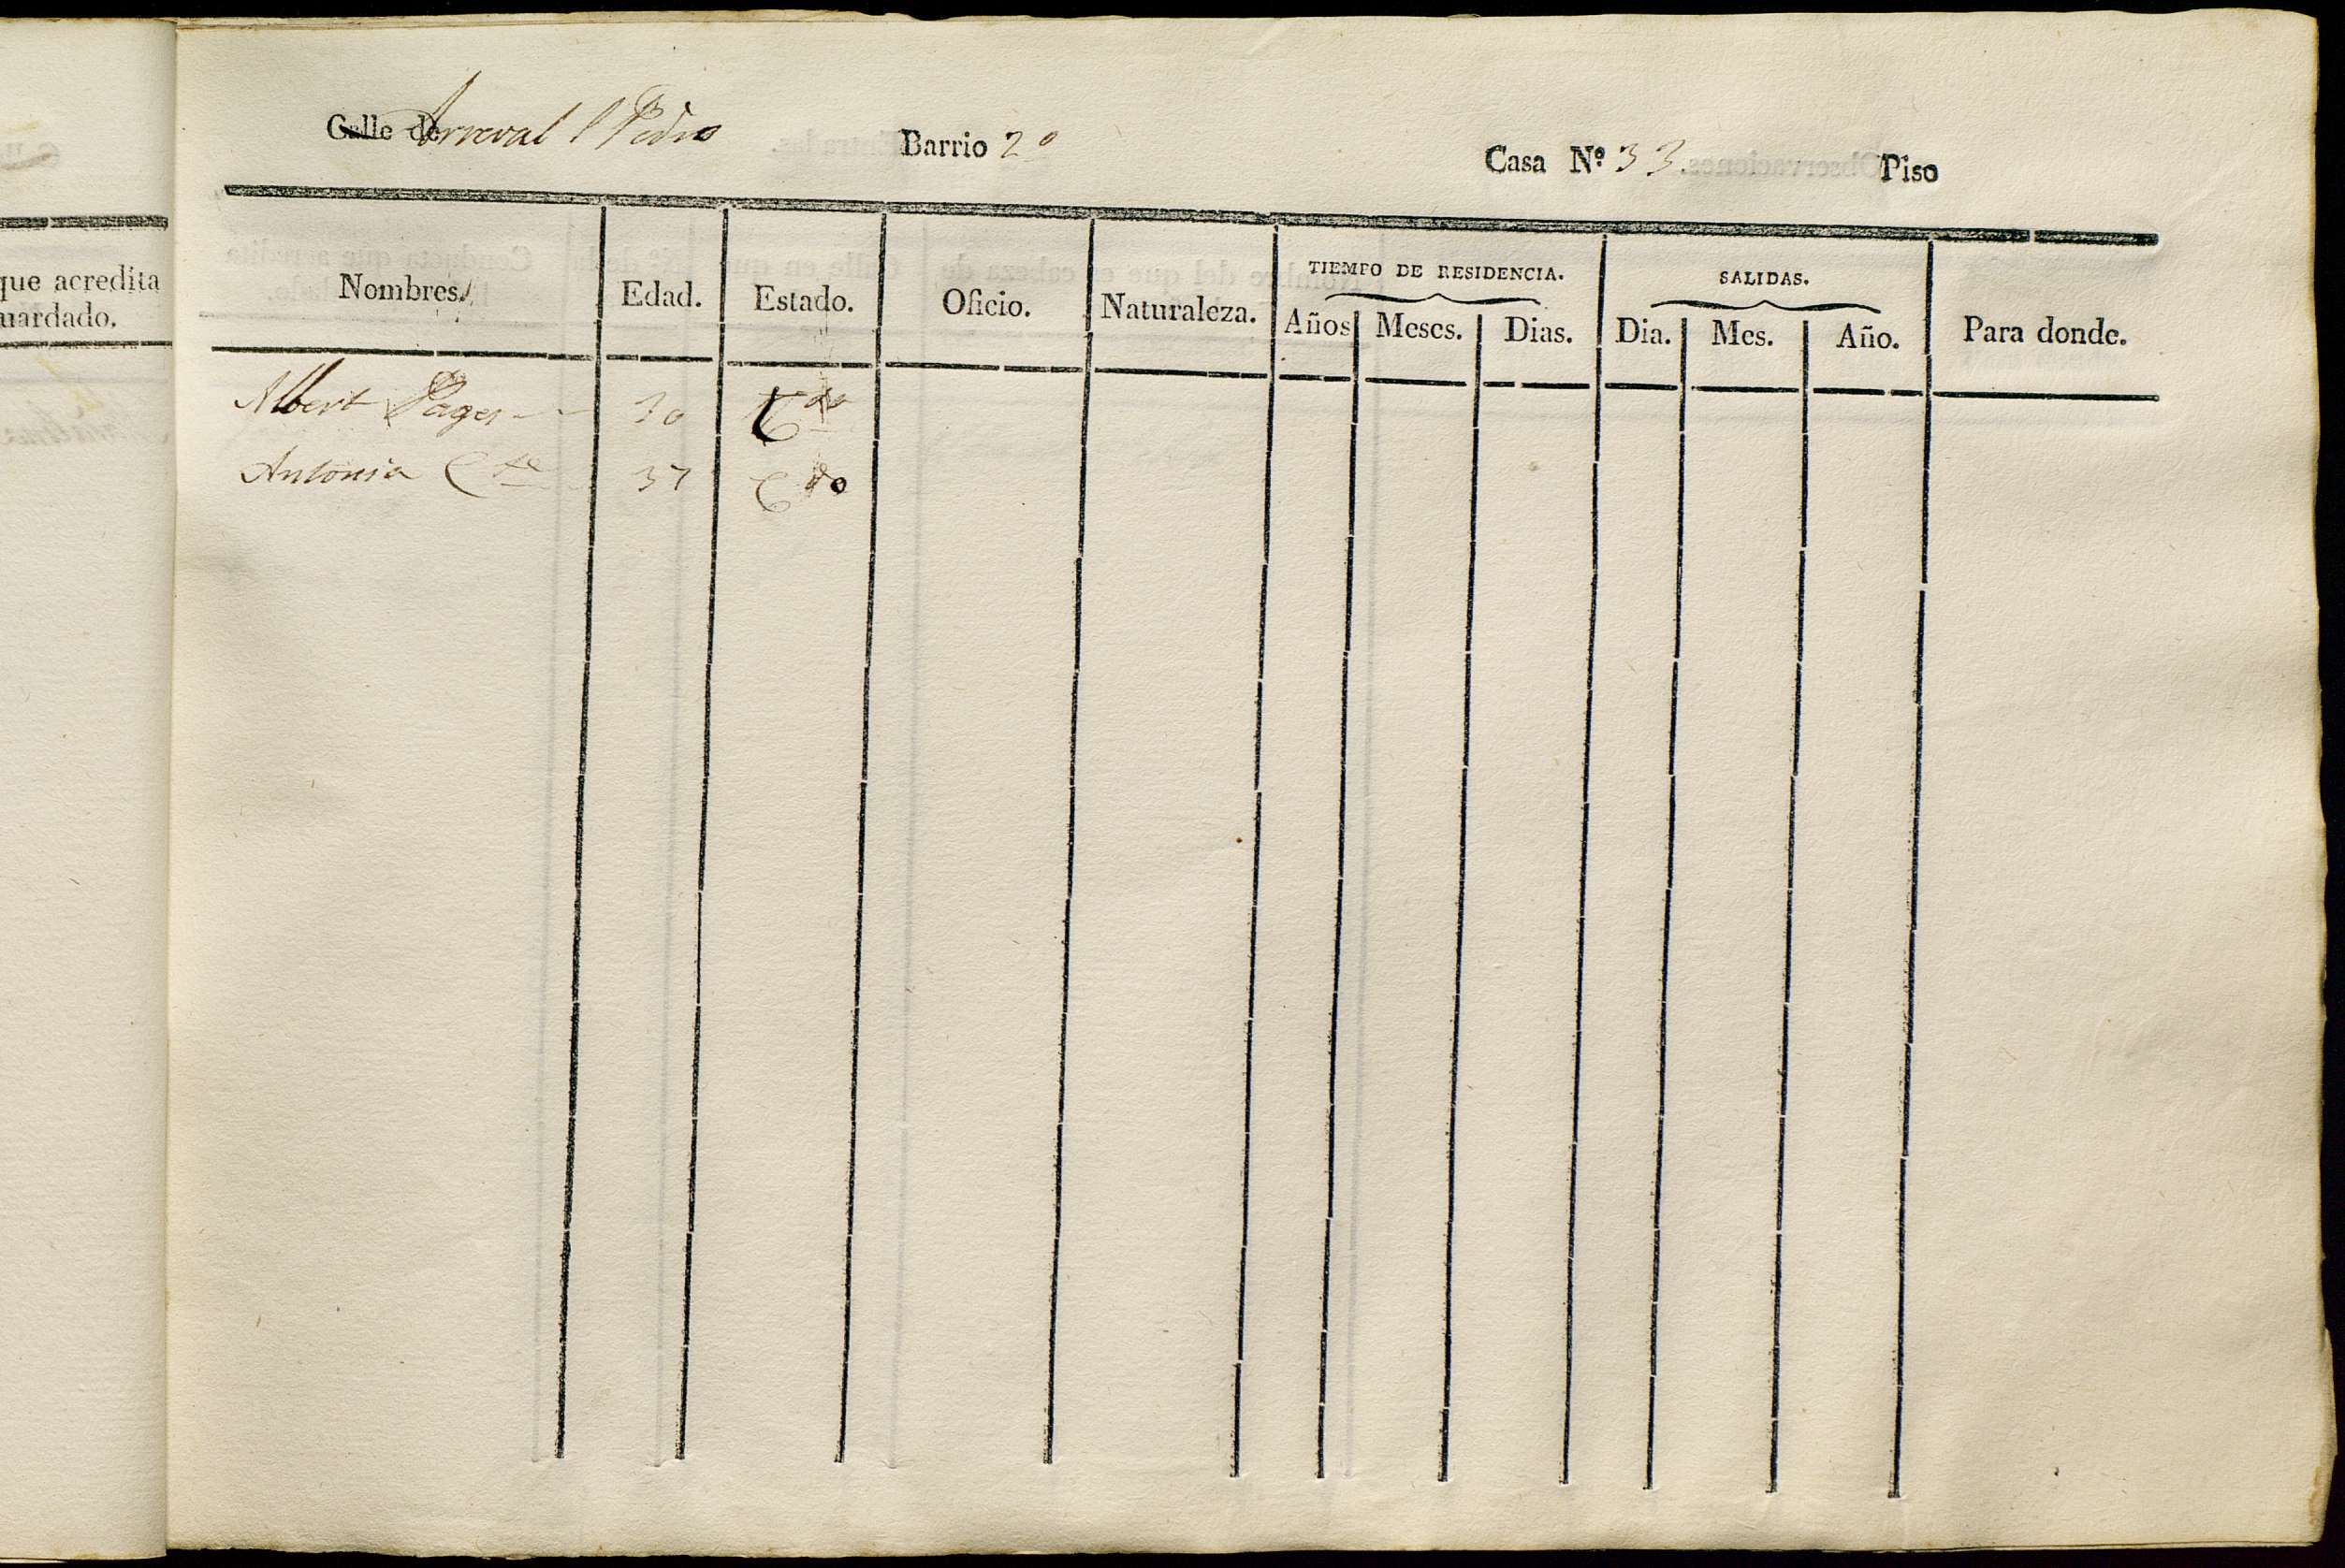 que acredita
uardado.
Calle de Arraval S Pedro Barrio 2º Casa Nº 33. Piso
Nombres. Edad. Estado. Oficio. Naturaleza. TIEMPO DE RESIDENCIA. SALIDAS. Para donde.
Años Meses. Dias. Dia. Mes. Año.
Albert Pages 30 Cdo
Antonia 37 Cdo